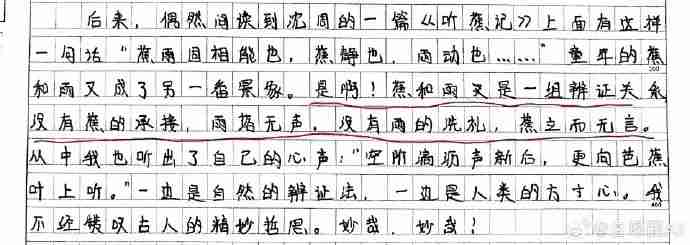 后来，偶然间读到沈周的一篇《听蕉记》上面有这样
一句话“蕉雨固相能也，蕉静也，雨动也……”童年的蕉
和雨又成了另一番景象。是啊！蕉和雨又是一组辨证关系
没有蕉的承接，雨落无声。没有雨的洗礼，蕉立而无言。
从中我也听出了自己的心声：“空阶滴沥声新后，更向芭蕉
叶上听。”一边是自然的辨证法，一边是人类的方寸心。我
不经领叹古人的精妙哲思。妙哉，妙哉！